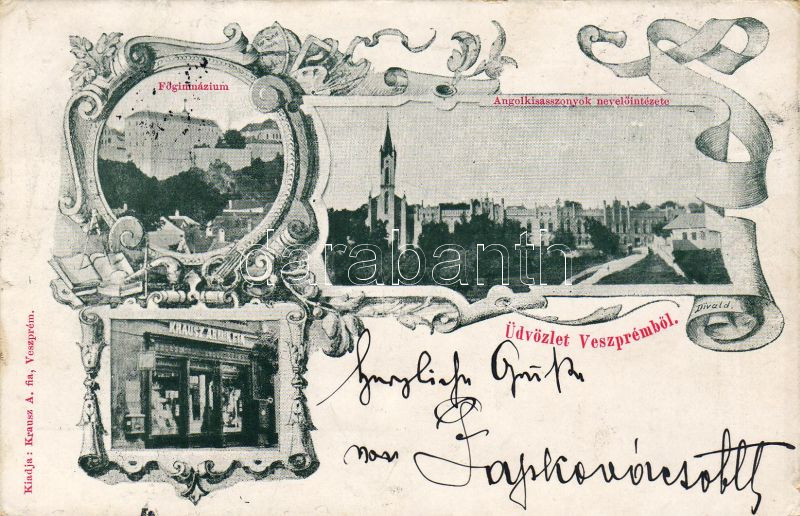 Főgimnázium
Angolkisasszonyok nevelőintézete
KRAUSZ ARMIN FIA
Divald.
Üdvözlet Veszprémből.
Kiadja: Krausz A. fia, Veszprém.
Herzliche Grüße
von
darabanth